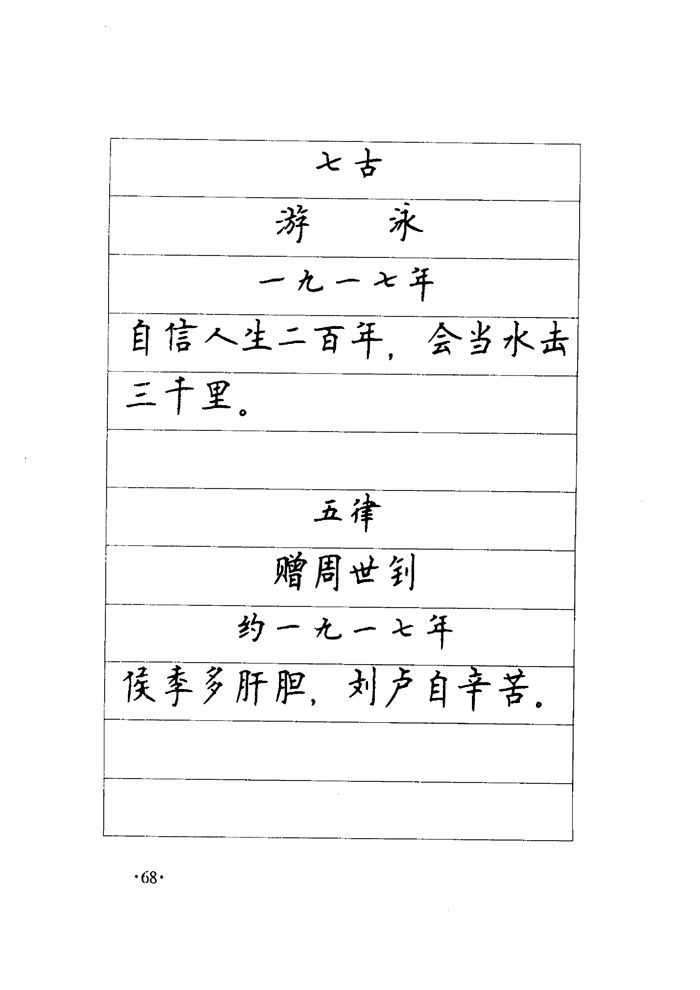 七古
游 泳
一九一七年
自信人生二百年，会当水击
三千里。
五律
赠周世钊
约一九一七年
侯季多肝胆，刘卢自辛苦。
·68·